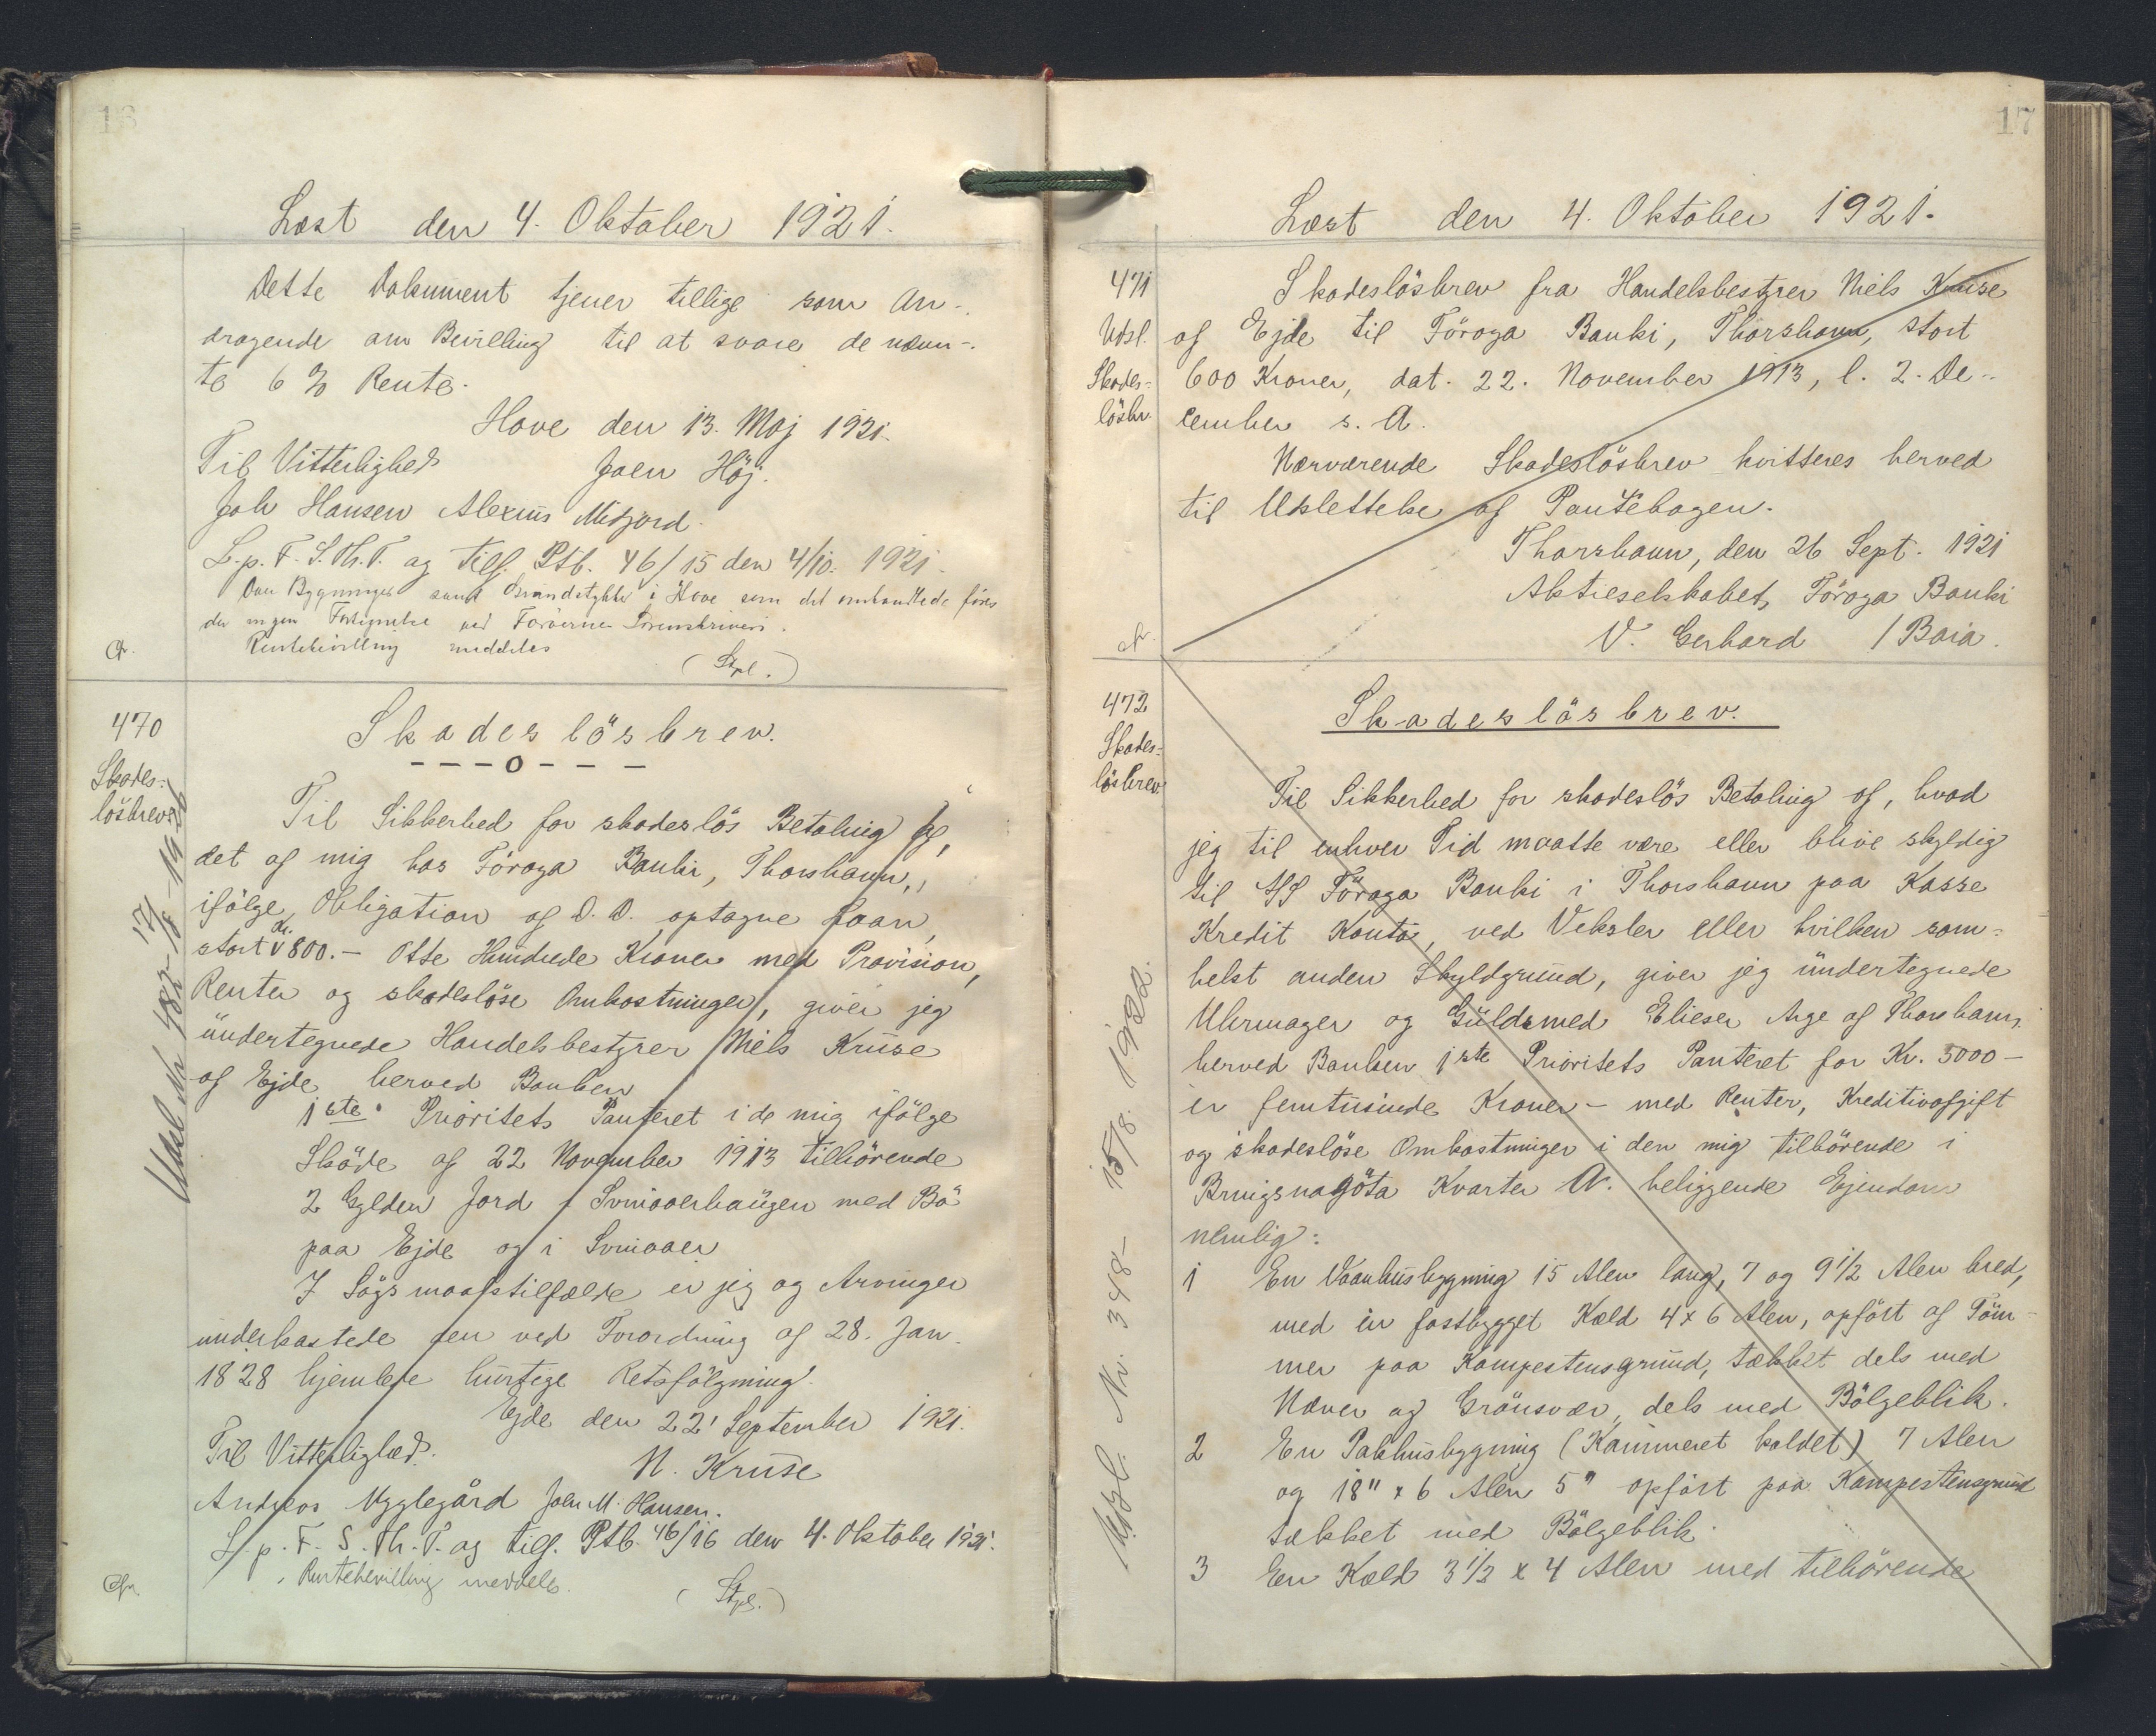 16
Læst den 4. Oktober 1921.
Dette Dokument tjener tillige som An-
dragende om Bevilling til at svare de nævn-
te 6 % Rente.
Hove den 13. Maj 1921.
Til Vitterlighed Joen Höj.
Joh Hansen Alexius Midjord.
L. p. F. S. Th. T. og Tilf. Ptb. 46/15 den 4/10. 1921.
Om Bygninger samt Grundstykke i Hove som det omhandlede föres
der ingen Fortegnelse ved Færøernes Sorenskriveri.
Rentebevilling meddeles
(Stpl.)
470
Skades-
lösbrev
Skadeslösbrev.
- - - o - - -
Til Sikkerhed for skadeslös Betaling af,
det af mig hos Föroya Banki, Thorshavn,
ifölge Obligation af D. D. optagne Laan,
stort Kr. 800.- Otte Hundrede Kroner med Provision,
Renter og skadeslöse Omkostninger, giver jeg
undertegnede Handelsbestyrer Niels Kruse
af Ejde herved Banken
1ste Prioritets Panteret i de mig ifölge
Sköde af 22 November 1913 tilhörende
2 Gylden Jord i Svinaaerhaugen med Bö
paa Ejde og i Svinaaer
I Sögsmaalstilfælde er jeg og Arvinger
underkastede den ved Forordning af 28. Jan.
1828 hjemlede hurtige Retsfölgning.
Ejde den 22' September 1921.
Til Vitterlighed. N. Kruse
Andreas Mygglegård Joh M. Hansen.
L. p. F. S. Th. T. og Tilf. Ptb. 46/16 den 4. Oktober 1921.
Rentebevilling meddeles. (Stpl.)
Udsl. Nr 482 - 17/18 - 19
17
Læst den 4. Oktober 1921.
471
Udsl.
Skades-
lösbr.
Skadeslösbrev fra Handelsbestyrer Niels Kruse
af Ejde til Föroya Banki, Thorshavn, stort
600 Kroner, dat. 22. November 1913, l. 2. De-
cember s. A.
Nærværende Skadeslösbrev kvitteres herved
til Udslettelse af Pantebogen.
Thorshavn, den 26 Sept. 1921
Aktieselskabet Föroya Banki
V. Gerhard / Baia.
472
Skades-
lösbrev
Skadeslösbrev.
Til Sikkerhed for skadeslös Betaling af, hvad
jeg til enhver Tid maatte være eller blive skyldig
til A/S Föroya Banki i Thorshavn paa Kasse
Kredit Konto, ved Veksler eller hvilken som-
helst anden Skyldgrund, giver jeg undertegnede
Uhrmager og Guldsmed Elieser Arge af Thorshavn
herved Banken 1ste Prioritets Panteret for Kr. 5000 -
er femtusinde Kroner - med Renter, Kreditivafgift
og skadeslöse Omkostninger i den mig tilhörende i
Bringsnagöta Kvarter A. beliggende Ejendom
nemlig:
1 En Vaanhusbygning 15 Alen lang, 7 og 9 1/2 Alen bred,
med en fastbygget Kæld 4 x 6 Alen, opfört af Töm-
mer paa Kampestensgrund, tækket dels med
Næver og Grönsvær, dels med Bölgeblik.
2 En Pakhusbygning (Kammeret kaldet) 7 Alen
og 18" x 6 Alen 5" opfört paa Kampestensgrund
tækket med Bölgeblik.
3 En Kæld 3 1/2 x 4 Alen med tilhörende
Udsl. Nr. 348 - 15/8. 1922.